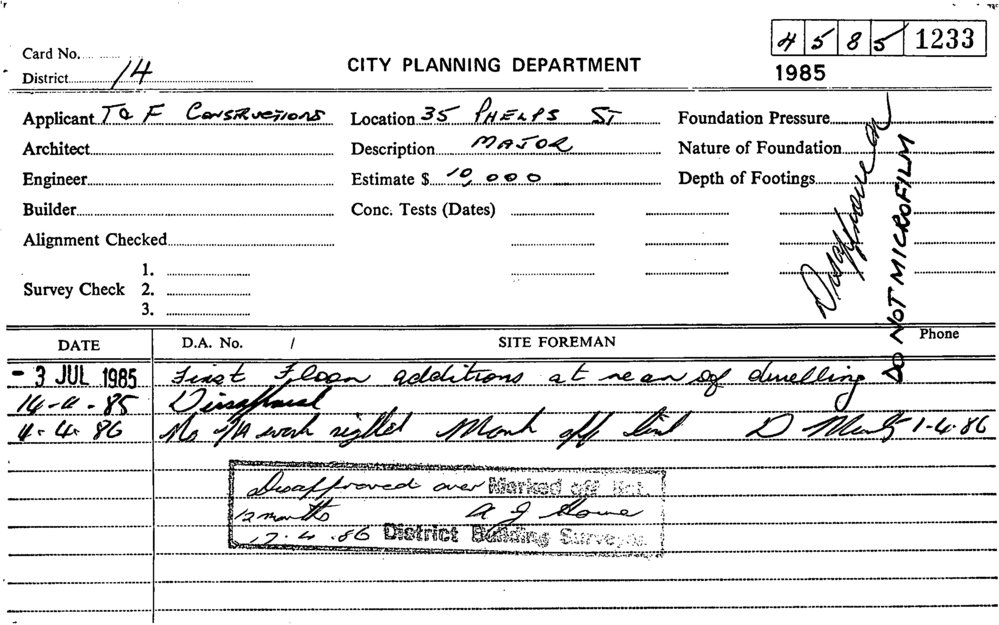 4585 1233
Card No.
District 14
CITY PLANNING DEPARTMENT
1985
Applicant T & F CONSTRUCTIONS Location 35 PHELPS ST Foundation Pressure
Architect Description MAJOR Nature of Foundation
Engineer Estimate $ 10,000 Depth of Footings
Builder Conc. Tests (Dates)
Alignment Checked
1.
Survey Check 2.
3.
Disapproved
DO NOT MICROFILM
DATE D.A. No. / SITE FOREMAN Phone
- 3 JUL 1985 First Floor additions at rear of dwelling
85 Disapproval
4. 86 No work sighted Mark off list D 1-4-86
Disapproved over Marked off list.
12 months A J
17.4.86 District Building Surveyor.